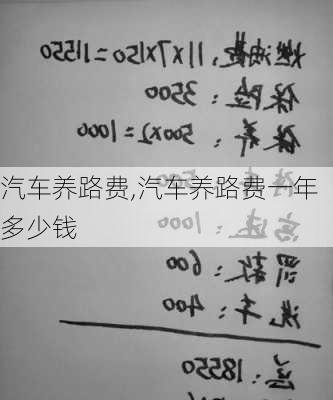 燃油费:11x7x150=11550
保险:3500
保养:500x2=1000
汽车养路费,汽车养路费一年
高速:1000
多少钱
罚款:600
洗车:400
总:18550